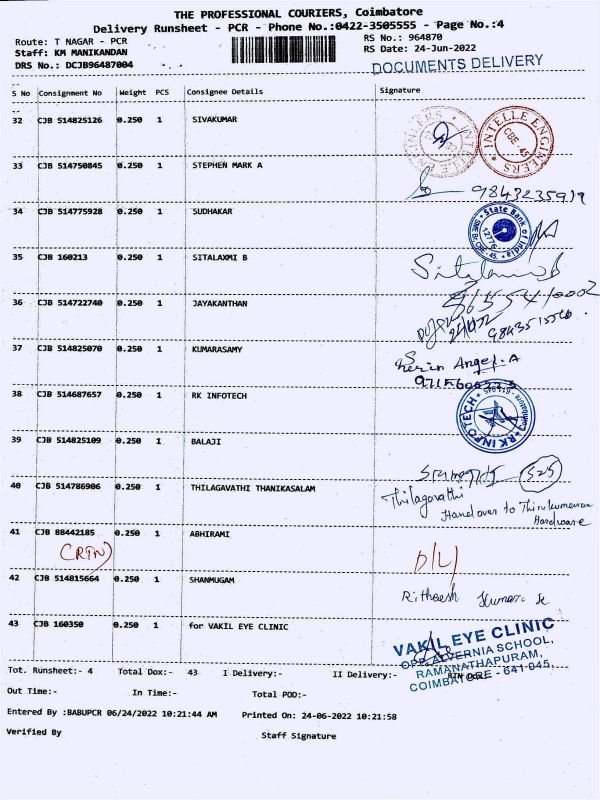 THE PROFESSIONAL COURIERS, Coimbatore
Delivery Runsheet - PCR - Phone No.:0422-3505555 - Page No.:4
Route: T NAGAR - PCR RS No.: 964870
Staff: KM MANIKANDAN RS Date: 24-Jun-2022
DRS No.: DCJB96487004 DOCUMENTS DELIVERY
S No Consignment No Weight PCS Consignee Details Signature
32 CJB 514825126 0.250 1 SIVAKUMAR
INTELLE ENGINEERS CBE - 45
33 CJB 514750845 0.250 1 STEPHEN MARK A
9843235919
34 CJB 514775928 0.250 1 SUDHAKAR
State Bank of India
12776
SME Br, CBE - 45.
35 CJB 160213 0.250 1 SITALAXMI B
36 CJB 514722740 0.250 1 JAYAKANTHAN
37 CJB 514825070 0.250 1 KUMARASAMY
Angel. A
38 CJB 514687657 0.250 1 RK INFOTECH
RK INFOTECH
39 CJB 514825109 0.250 1 BALAJI
525
40 CJB 514786906 0.250 1 THILAGAVATHI THANIKASALAM
Thilagavathi
Handover to Thirukumaran
Hardware
41 CJB 88442185 0.250 1 ABHIRAMI
(RTN) D/L
42 CJB 514815664 0.250 1 SHANMUGAM
Ritheesh Kumar. K
43 CJB 160350 0.250 1 for VAKIL EYE CLINIC
VAKIL EYE CLINIC
OPP. ALVERNIA SCHOOL,
RAMANATHAPURAM,
COIMBATORE - 641 045.
Tot. Runsheet:- 4 Total Dox:- 43 I Delivery:- II Delivery:- RTN Dox:-
Out Time:- In Time:- Total POD:-
Entered By :BABUPCR 06/24/2022 10:21:44 AM Printed On: 24-06-2022 10:21:58
Verified By Staff Signature